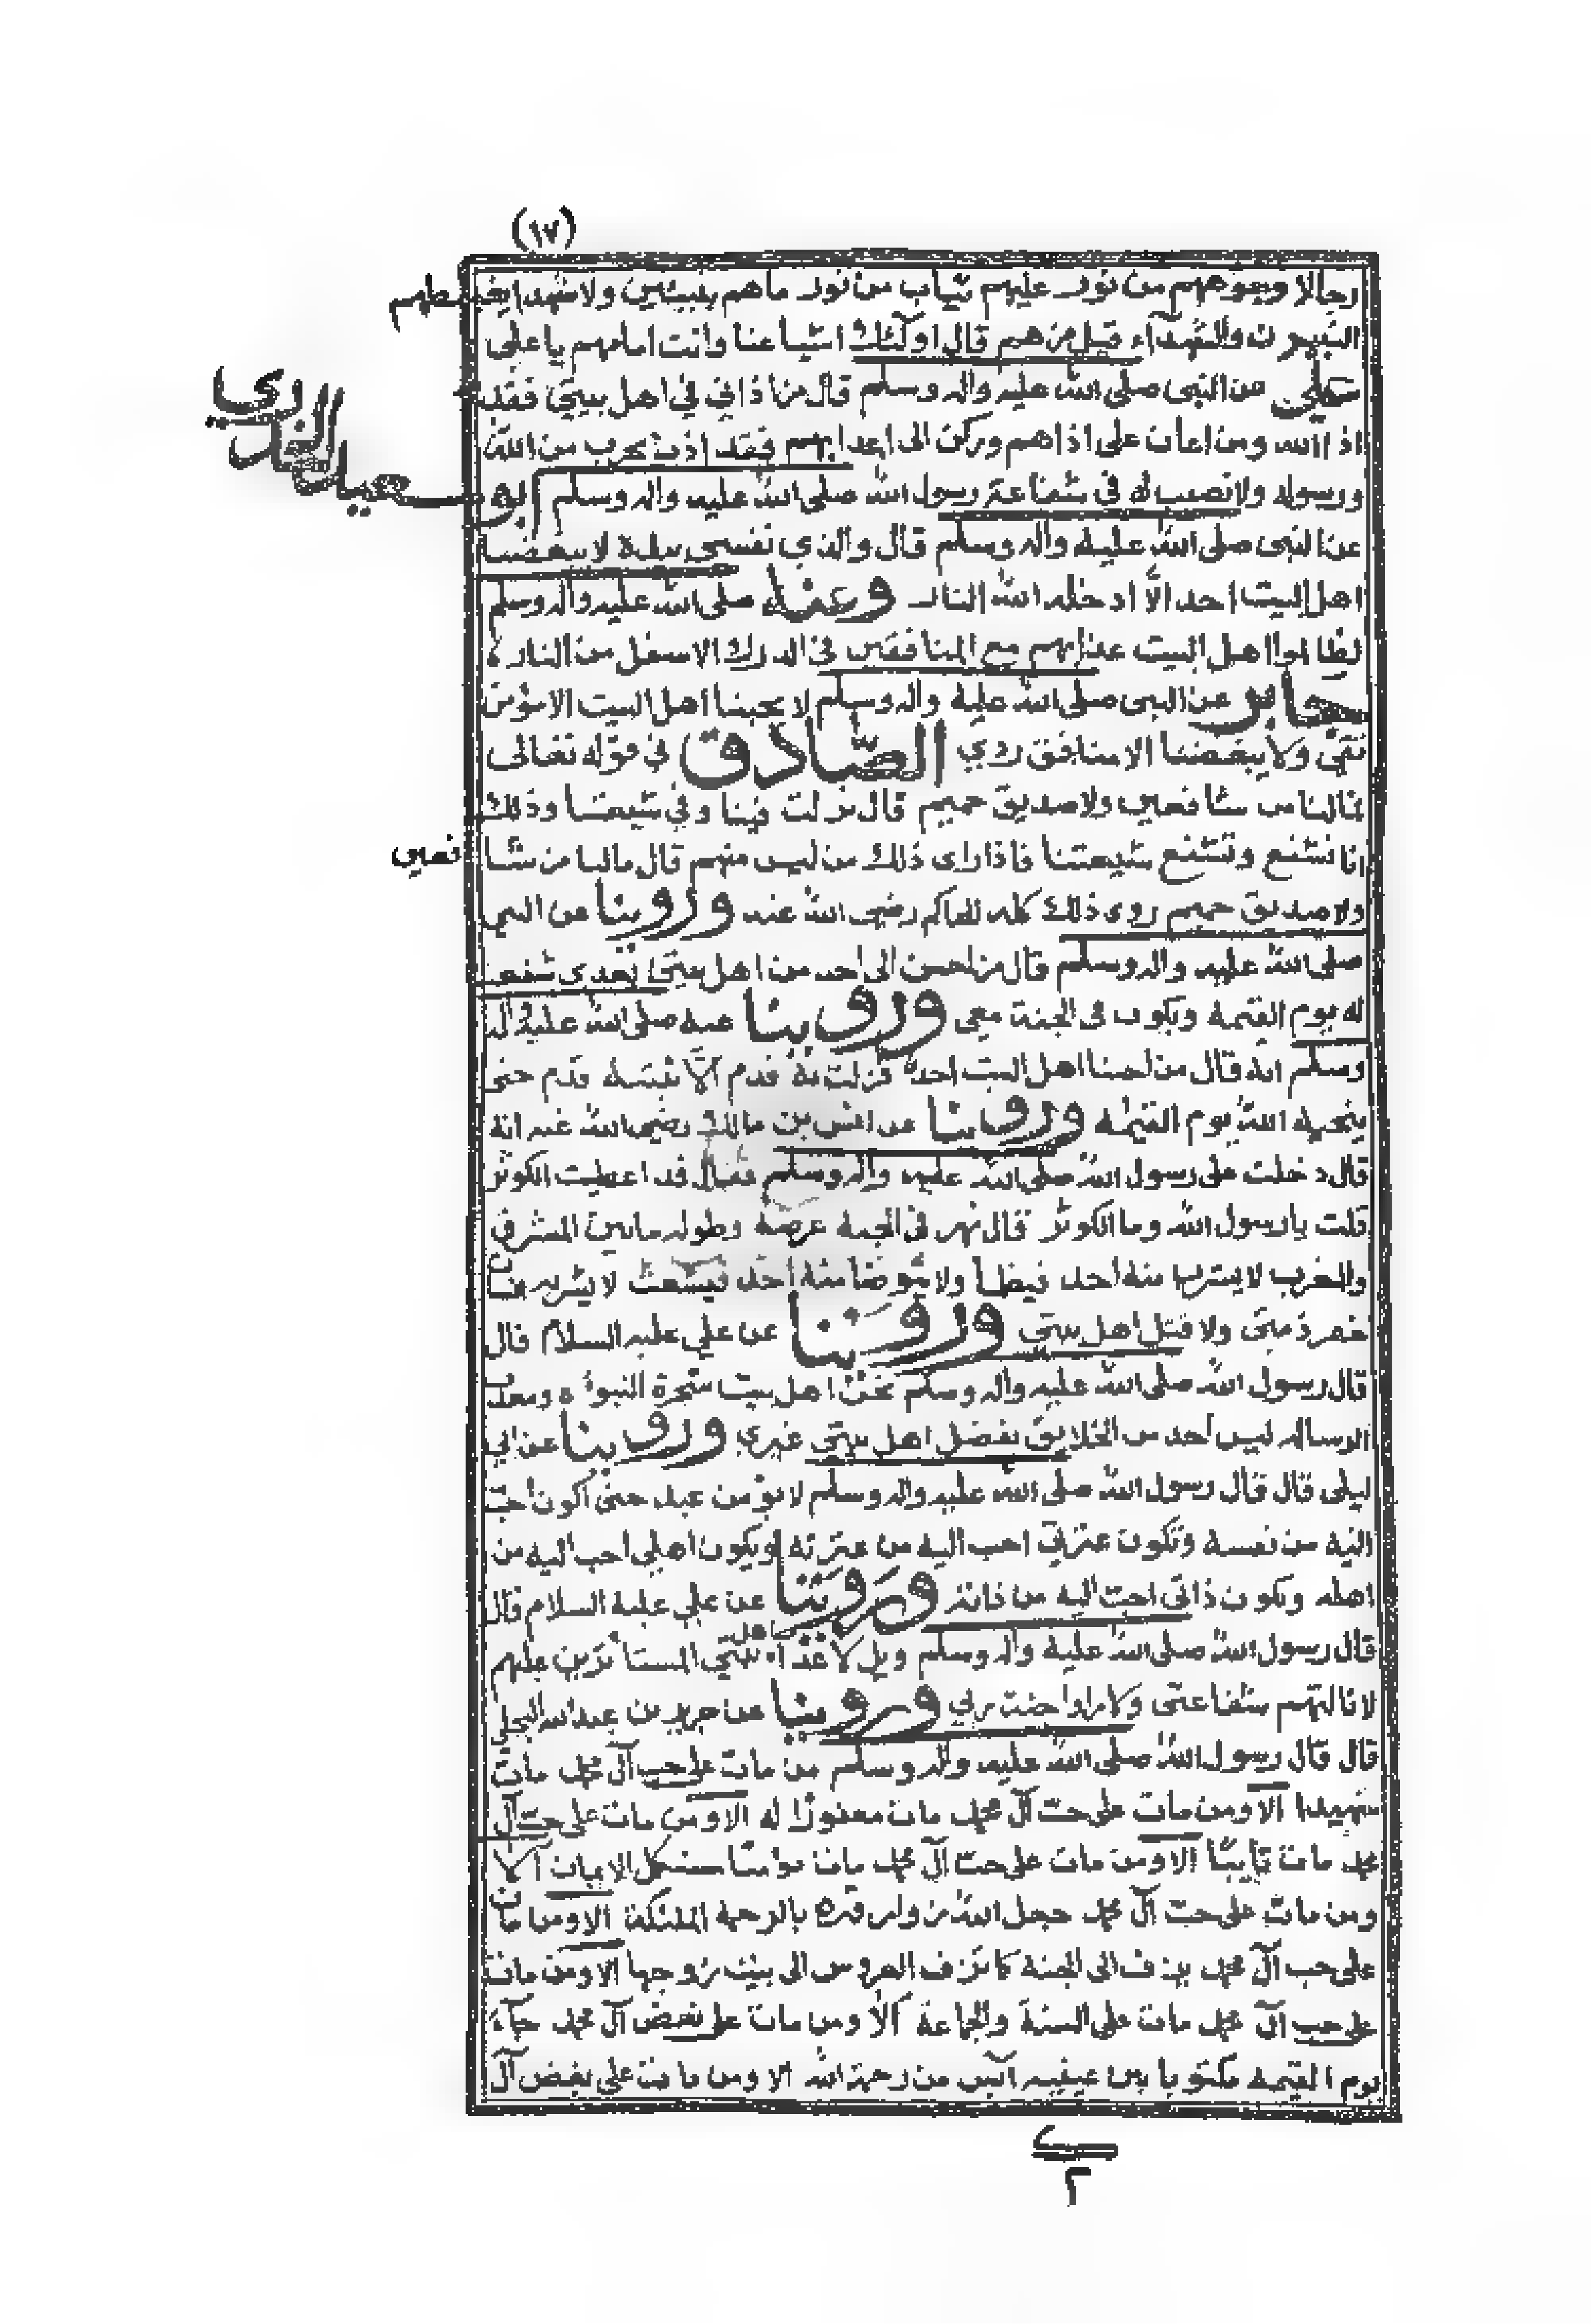 (١٧)
رجالا وجوههم من نور عليهم ثياب من نور ما هم بنبيين ولا شهدا يغبطهم
النبيون والشهدآء قيل من هم قال اولئك اشياعنا وانت امامهم يا علي
علي عن النبي صلى الله عليه واله وسلم قال من اذاني في اهل بيتي فقد
اذا الله ومن اعان على اذاهم وركن الى اعدايهم فقد اذن بحرب من الله
ورسوله ولا نصيب له في شفاعة رسول الله صلى الله عليه واله وسلم ابو سعيد الخدري
عن النبي صلى الله عليه واله وسلم قال والذي نفسي بيده لا يبغضنا
اهل البيت احد الا ادخله الله النار وعنه صلى الله عليه واله وسلم
لظالموا اهل البيت عذابهم مع المنافقين في الدرك الاسفل من النار ه
جابر عن النبي صلى الله عليه واله وسلم لا يحبنا اهل البيت الا مؤمن
تقي ولا يبغضنا الا منافق ردي الصادق في قوله تعالى
فما لنا من شافعين ولا صديق حميم قال نزلت فينا وفي شيعتنا وذلك
انا نشفع وتشفع شيعتنا فاذا راى ذلك من ليس منهم قال ما لنا من شافعين
ولا صديق حميم روى ذلك كله الحاكم رضي الله عنه وروينا عن النبي
صلى الله عليه واله وسلم قال من احسن الى احد من اهل بيتي بعدي شفعت
له يوم القيمة ويكون في الجنة معي وروينا عنه صلى الله عليه واله
وسلم انه قال من احبنا اهل البيت احد فزلت به قدم الا ثبتته قدم حتى
ينجيه الله يوم القيمة وروينا عن انس بن مالك رضي الله عنه انه
قال دخلت على رسول الله صلى الله عليه واله وسلم فقال قد اعطيت الكوثر
قلت يا رسول الله وما الكوثر قال نهر في الجنة عرضه وطوله ما بين المشرق
والمغرب لا يشرب منه احد فيظما ولا يتوضا منه احد فيشعث لا يشربه من
اخفر ذمتي ولا قتل اهل بيتي وروينا عن علي عليه السلام قال
قال رسول الله صلى الله عليه واله وسلم نحن اهل بيت شجرة النبوة ومعدن
الرسالة ليس احد من الخلايق يفضل اهل بيتي غيري وروينا عن ابي
ليلى قال قال رسول الله صلى الله عليه واله وسلم لا يؤمن عبد حتى اكون احب
اليه من نفسه وتكون عترتي احب اليه من عترته ويكون اهلي احب اليه من
اهله وتكون ذاتي احب اليه من ذاته وروينا عن علي عليه السلام قال
قال رسول الله صلى الله عليه واله وسلم ويل لاعداء اهل بيتي المستاثرين عليهم
لا نالتهم شفاعتي ولا راوا جنة ربي وروينا عن جرير بن عبد الله البجلي
قال قال رسول الله صلى الله عليه واله وسلم من مات على حب آل محمد مات
شهيدا الا ومن مات على حب آل محمد مات مغفورا له الا ومن مات على حب آل
محمد مات تايبا الا ومن مات على حب آل محمد مات مؤمنا مستكمل الايمان الا
ومن مات على حب آل محمد جعل الله زوار قبره بالرحمة الملئكة الا ومن مات
على حب آل محمد يزف الى الجنة كما تزف العروس الى بيت زوجها الا ومن مات
على حب آل محمد مات على السنة والجماعة الا ومن مات على بغض آل محمد جآء
يوم القيمة مكتوبا بين عينيه آيس من رحمة الله الا ومن مات على بغض آل
٢